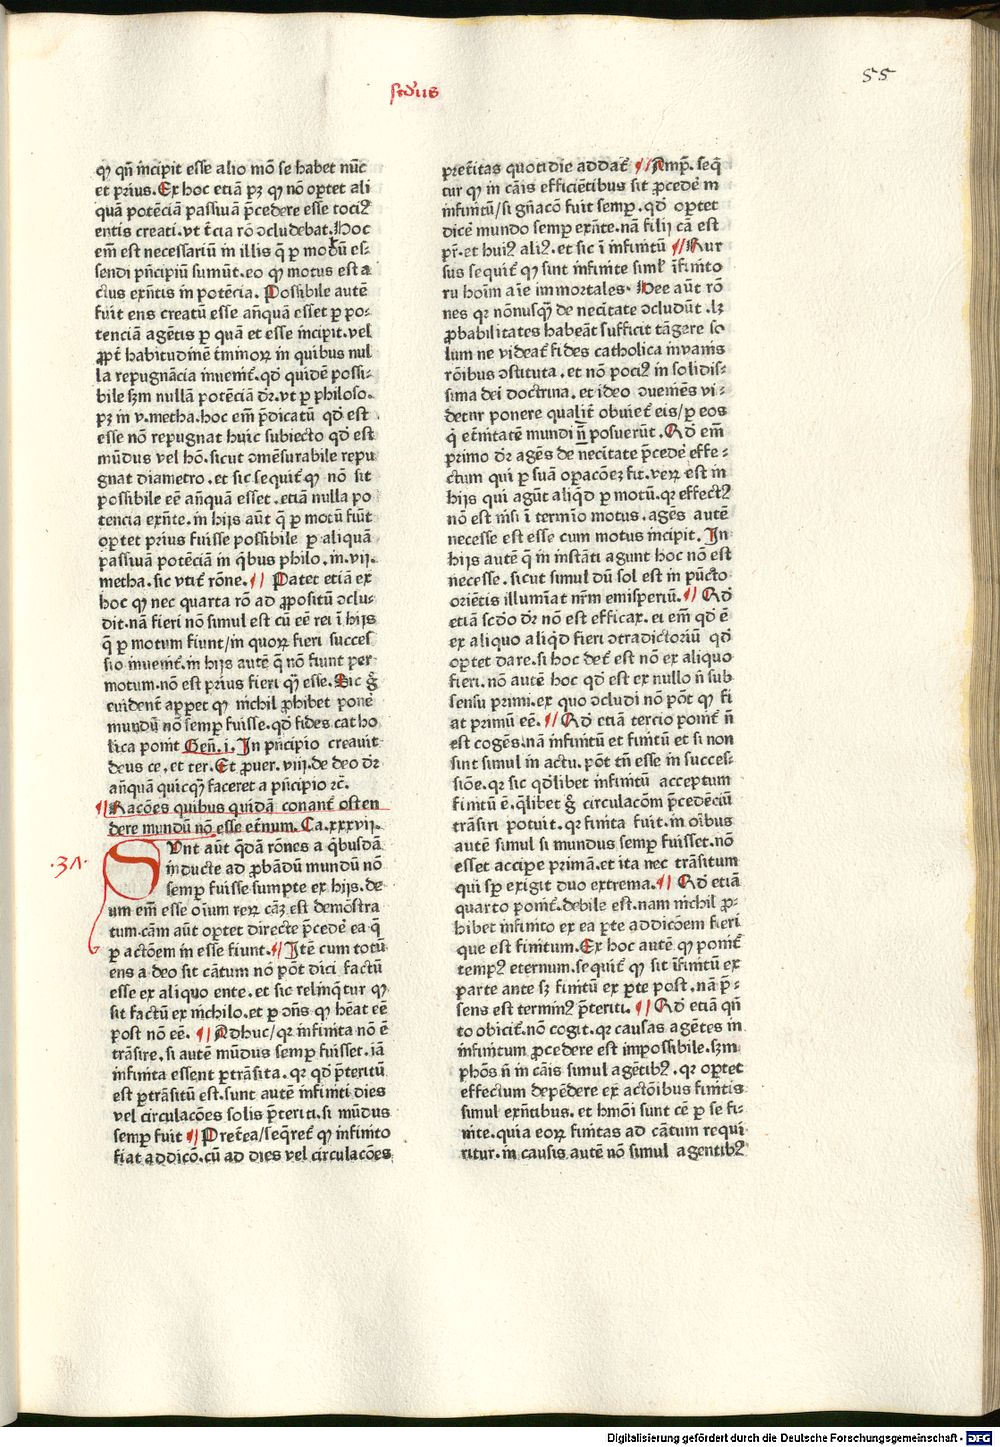 scđus
55
ꝙ qn̄ incipit esse alio mō se habet nūc
et prius. Ex hoc etiā pꝫ ꝙ nō oꝑtet ali
quā potēciā passiuā p̄cedere esse tociꝰ
entis creati. vt t̄cia rō ↄcludebat. Hoc
em̄ est necessariū in illis q̄ ꝑ modū es⸗
sendi pn̄cipiū sumūt. eo ꝙ motus est a
ctus exn̄tis in potēcia. Possibile autē
fuit ens creatū esse an̄quā esset ꝑ po⸗
tenciā agētis ꝑ quā et esse incipit. vel
ꝓpt̄ habitudinē t̄minoꝝ in quibus nul
la repugnācia inuenit̄. qđ quidē possi⸗
bile scꝫm nullā potēciā dr̄. vt ꝑ philoso⸗
pꝫ in v. metha. hoc em̄ p̄dicatū qđ est
esse nō repugnat huic subiecto qđ est
mūdus vel hō. sicut ↄmēsurabile repu
gnat diametro. et sic sequit̄ ꝙ nō sit
possibile eē an̄quā esset. etiā nulla po
tencia exn̄te. in hijs aūt q̄ ꝑ motū fiūt
oꝑtet prius fuisse possibile ꝑ aliquā
passiuā potēciā in qͥbus philo. in. vij.
metha. sic vtit̄ rōne. ¶ Patet etiā ex
hoc ꝙ nec quarta rō ad ꝓpositū ↄclu⸗
dit. nā fieri nō simul est cū eē rei ī hijs
q̄ ꝑ motum fiunt/in quoꝝ fieri succes
sio inuenit̄. in hijs autē q̄ nō fiunt per
motum. nō est prius fieri qͣꝫ esse. Sic ḡ
euident̄ apꝑet ꝙ nichil ꝓhibet ponē
mundū nō semꝑ fuisse. qđ fides catho
lica ponit Gen̄. i. In pn̄cipio creauit
deus ce. et ter. Et ꝓuer. viii. de deo dr̄
an̄quā quicqͣꝫ faceret a pn̄cipio ⁊c̄.
¶ Racōes quibus quidā conant̄ osten
dere mundū nō esse et̄num. Ca. xxxvij.
·3Λ·
SVnt aūt qͥdā rōnes a qͥbusdā
inducte ad ꝓbādū mundū nō
semꝑ fuisse sumpte ex hijs. de⸗
um em̄ esse oīum reꝝ cāꝫ est demōstra
tum. cām aūt oꝑtet directe p̄cedē ea q̄
ꝑ actōem in esse fiunt. ¶ Itē cum totū
ens a deo sit cātum nō pōt dici factū
esse ex aliquo ente. et sic relinqͥtur ꝙ
sit factū ex nichilo. et ꝑ ↄn̄s ꝙ hēat eē
post nō eē. ¶ Adhuc/qꝛ infinita nō ē
trāsire. si autē mūdus semꝑ fuisset. iā
infinita essent ꝑtrāsita. qꝛ qđ p̄teritū
est ꝑtrāsitū est. sunt autē infiniti dies
vel circulacōes solis p̄teriti. si mūdus
semꝑ fuit ¶ Pret̄ea/seqͥret̄ ꝙ infinito
fiat addicō. cū ad dies vel circulacōes
pret̄itas quotidie addat̄ ¶ Ampꝫ. seqͥ
tur ꝙ in cāis efficiētibus sit ꝓcedē in
infinitū/si gn̄acō fuit semꝑ. qđ oꝑtet
dicē mundo semꝑ exn̄te. nā filij cā est
pr̄. et huiꝰ aliꝰ. et sic ī infinitū ¶ Rur
sus sequit̄ ꝙ sint infinite siml̄ īfinito
ru hoīm aīe immortales. Hee aūt rō
nes qꝛ nōnusqͣꝫ de necītate ↄcludūt. lꝫ
ꝓbabilitates habeāt sufficit tāgere so
lum ne videat̄ fides catholica in vanis
rōibus ↄstituta. et nō pociꝰ in solidis⸗
sima dei doctrina. et ideo ↄueniēs vi⸗
detur ponere qualit̄ obuiet̄ eis/ꝑ eos
qͥ et̄nitatē mundi n̄ posuerūt. Ad em̄
primo dr̄ agēs de necītate p̄cedē effe⸗
ctum qui ꝑ suā oꝑacōeꝫ fit. veꝝ est in
hijs qui agūt aliqͥd ꝑ motū. qꝛ effectꝰ
nō est nisi ī termīo motus. agēs autē
necesse est esse cum motus incipit. In
hijs autē q̄ in instāti agunt hoc nō est
necesse. sicut simul dū sol est in pūcto
oriētis illuminat nr̄m emisperiū. ¶ Ad
etiā scđo dr̄ nō est efficax. ei em̄ qđ ē
ex aliquo aliqͥd fieri ↄtradictoriū qđ
oꝑtet dare. si hoc det̄ est nō ex aliquo
fieri. nō autē hoc qđ est ex nullo n̄ sub
sensu primi. ex quo ↄcludi nō pōt ꝙ fi
at primū eē. ¶ Ad etiā tercio ponit̄ n̄
est cogēs. nā infinitū et finitū et si non
sint simul in actu. pōt tn̄ esse in succes⸗
siōe. qꝛ sic qđlibet infinitū acceptum
finitū ē. qͣlibet ḡ circulacōm p̄cedēciū
trāsiri potuit. qꝛ finita fuit. in oībus
autē simul si mundus semꝑ fuisset. nō
esset acciꝑe primā. et ita nec trāsitum
qui sꝑ exigit duo extrema. ¶ Ad etiā
quarto ponit̄. debile est. nam nichil ꝓ⸗
hibet infinito ex ea ꝑte addicōem fieri
que est finitum. Ex hoc autē ꝙ ponit̄
tempꝰ eternum. sequit̄ ꝙ sit īfinitū ex
parte ante sꝫ finitū ex ꝑte post. nā p̄⸗
sens est terminꝰ p̄teriti. ¶ Ad etiā qn̄
to obicit̄. nō cogit. qꝛ causas agētes in
infinitum ꝓcedere est impossibile. scꝫm
phōs n̄ in cāis simul agētibꝰ. qꝛ oꝑtet
effectum depēdere ex actōibus finitis
simul exn̄tibus. et hmōi sunt cē ꝑ se fi⸗
nite. quia eoꝝ finitas ad cātum requi
ritur. in causis autē nō simul agentibꝰ
Digitalisierung gefördert durch die Deutsche Forschungsgemeinschaft - DFG